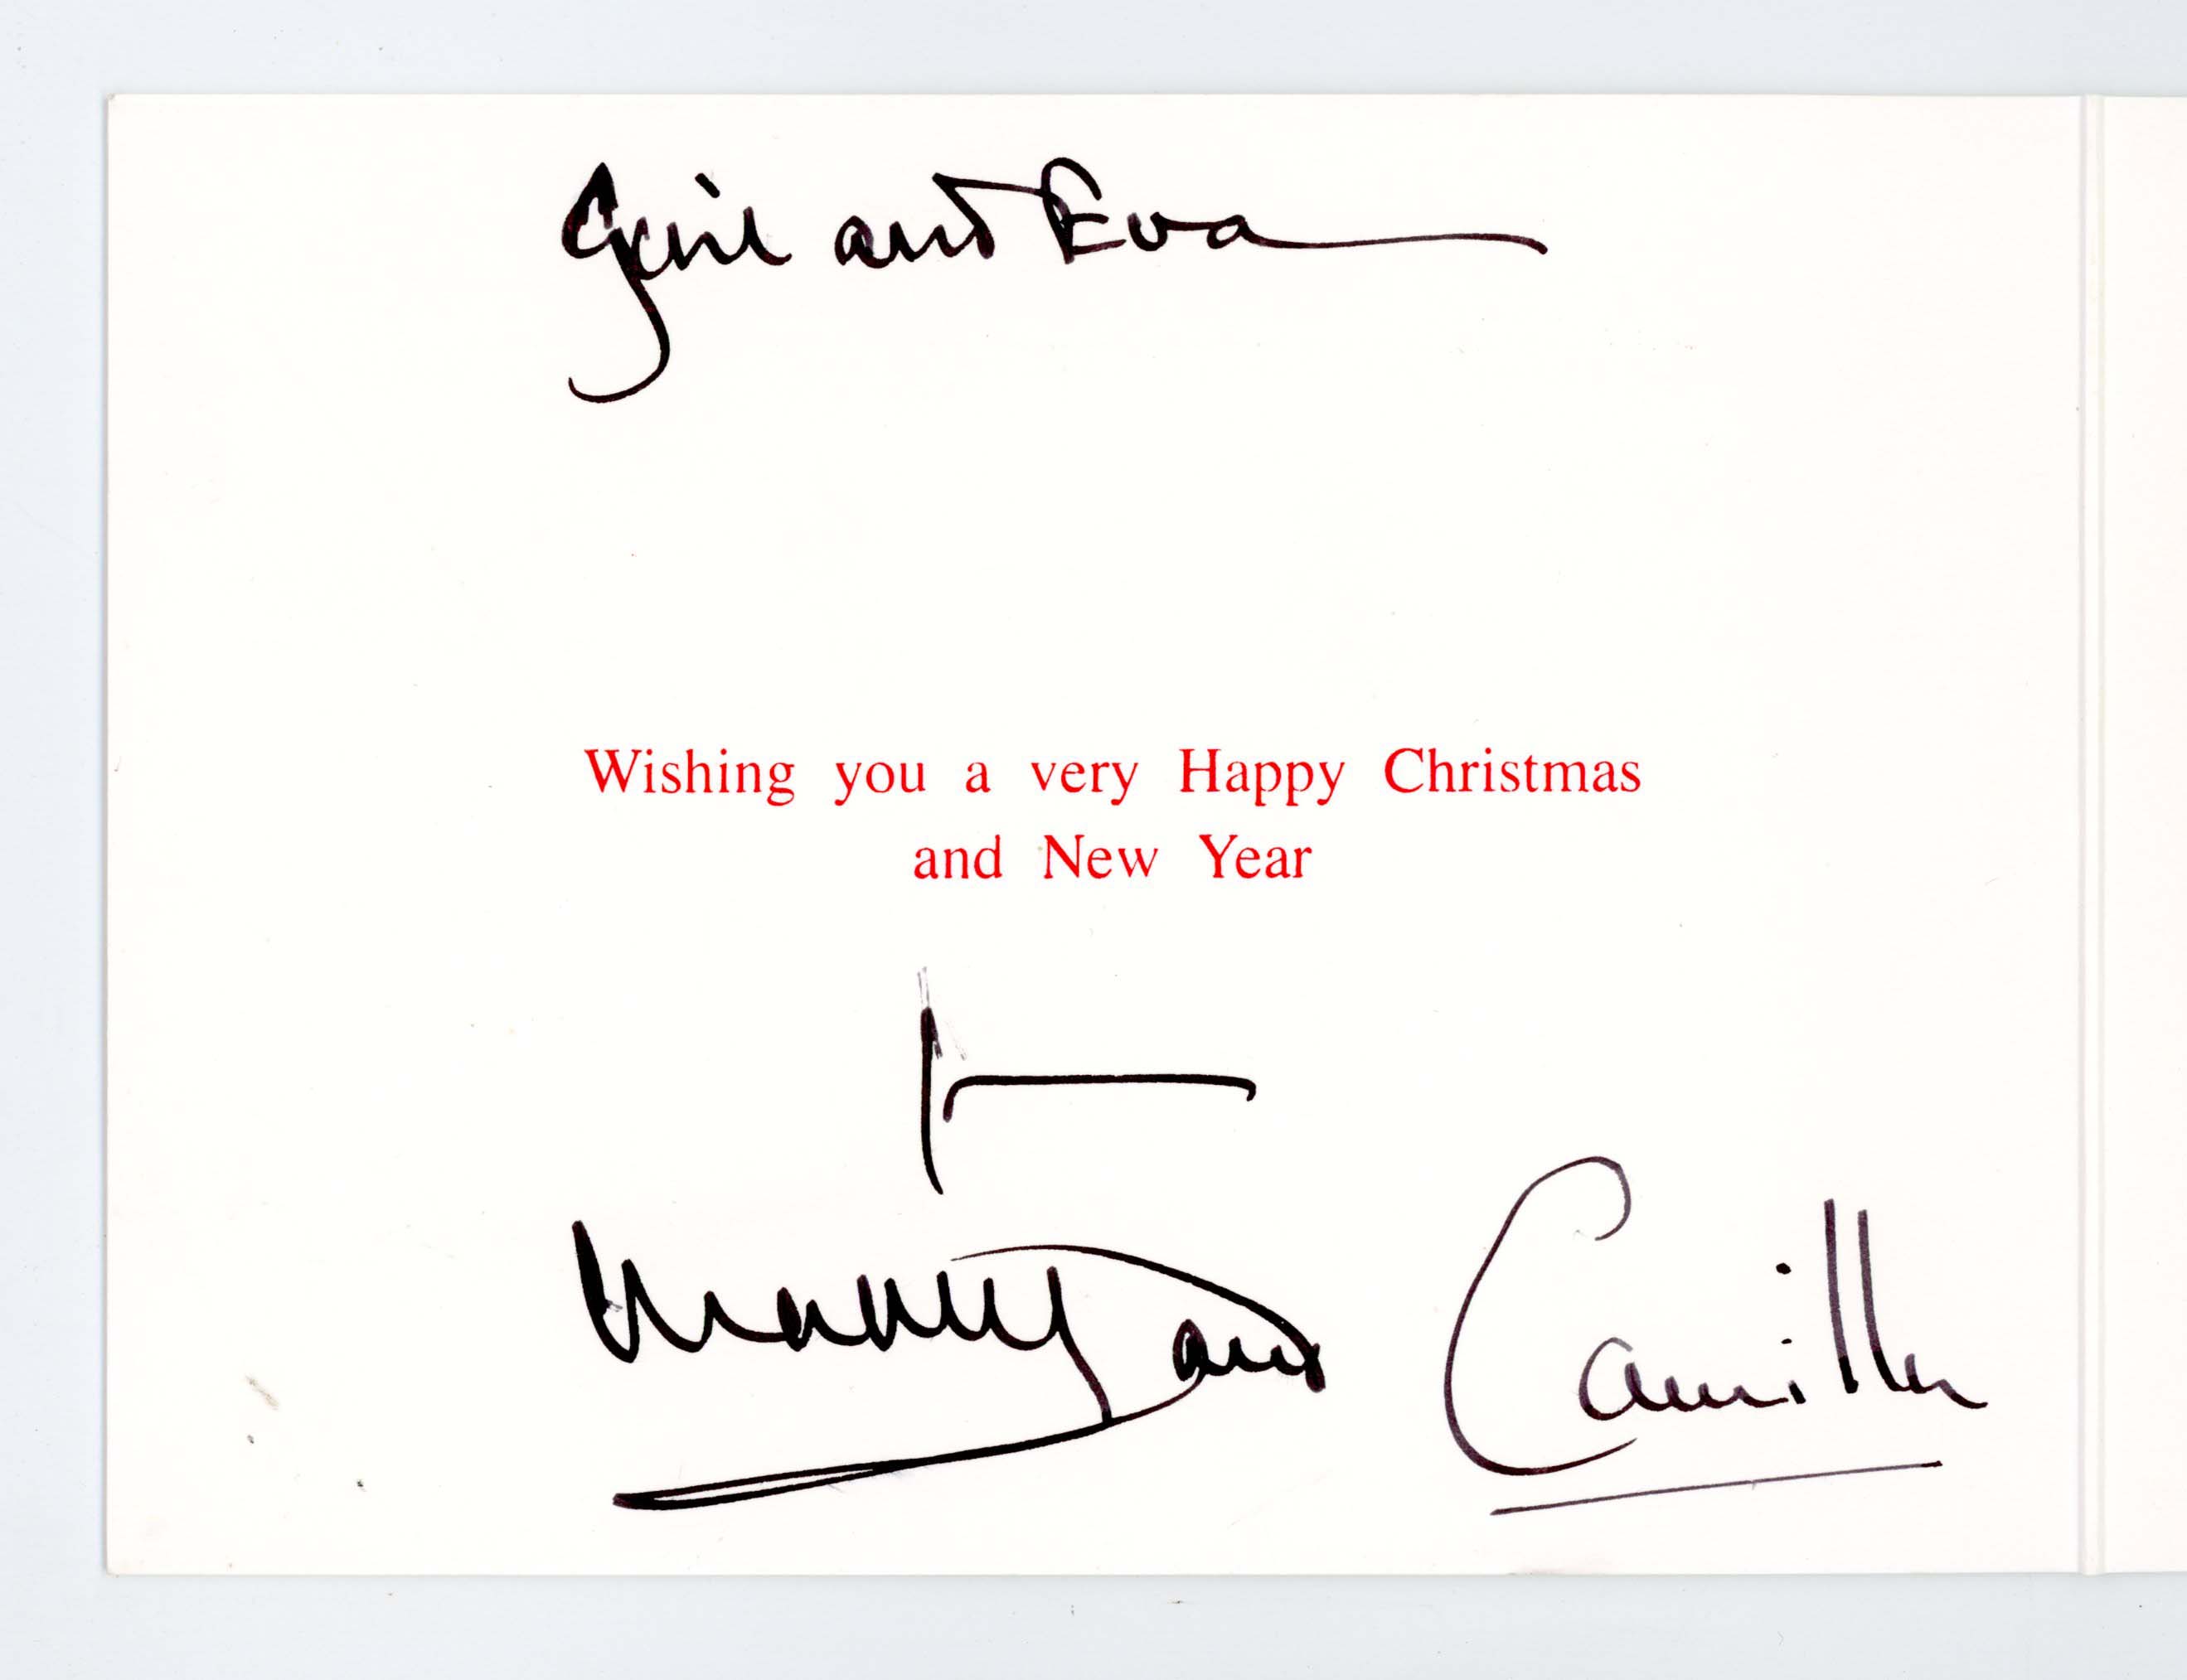 Cyril and Eva
Wishing you a very Happy Christmas
and New Year
and Camilla